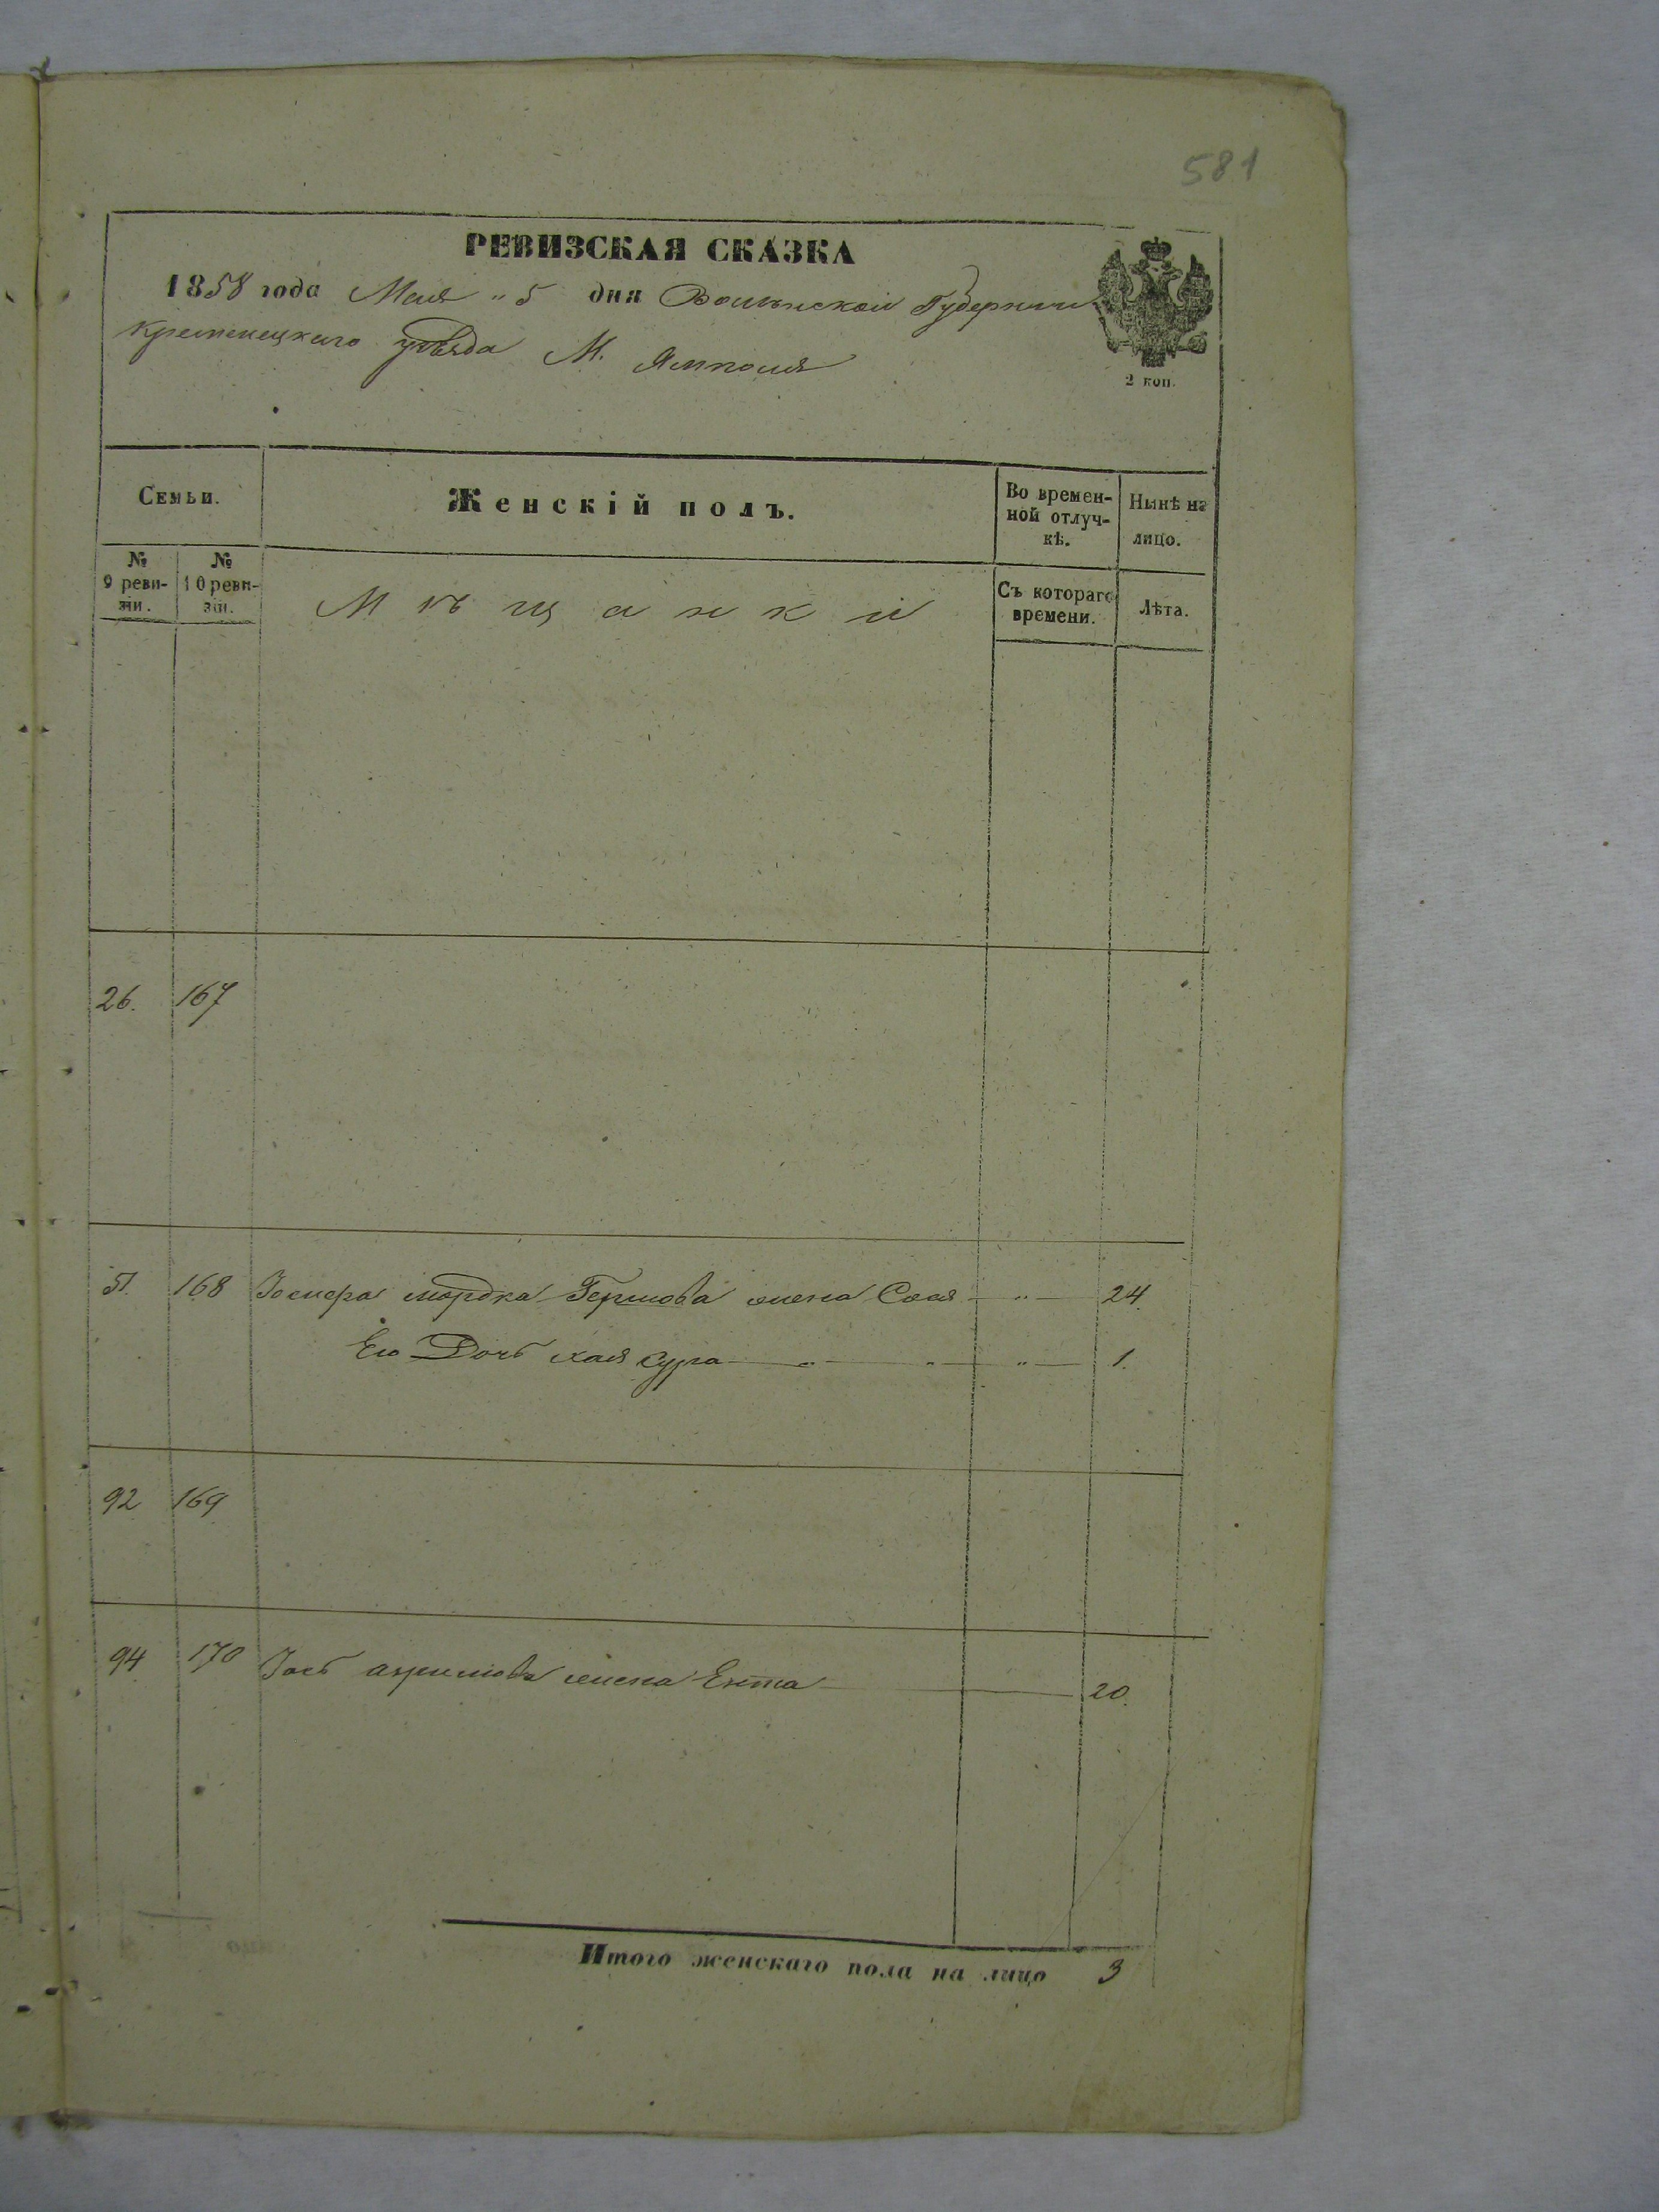 581
РЕВИЗСКАЯ СКАЗКА
1858 года Мая „ 5 дня Волынской Губернии
Кременецкаго уѣзда М. Ямполя
2 коп.
Семьи.
Женскій полъ.
Во времен-
ной отлуч-
кѣ.
Нынѣ на
лицо.
№
9 реви-
зіи.
№
10 реви-
зіи.
Мѣщанки
Съ котораго
времени.
Лѣта.
26. 167
51. 168 мордка Гершова жена Сося — „ — 24.
Его Дочь хая сура — „ — „ — „ — 1.
92 169
94 170 жена Ента — 20.
Итого женскаго пола на лицо 3